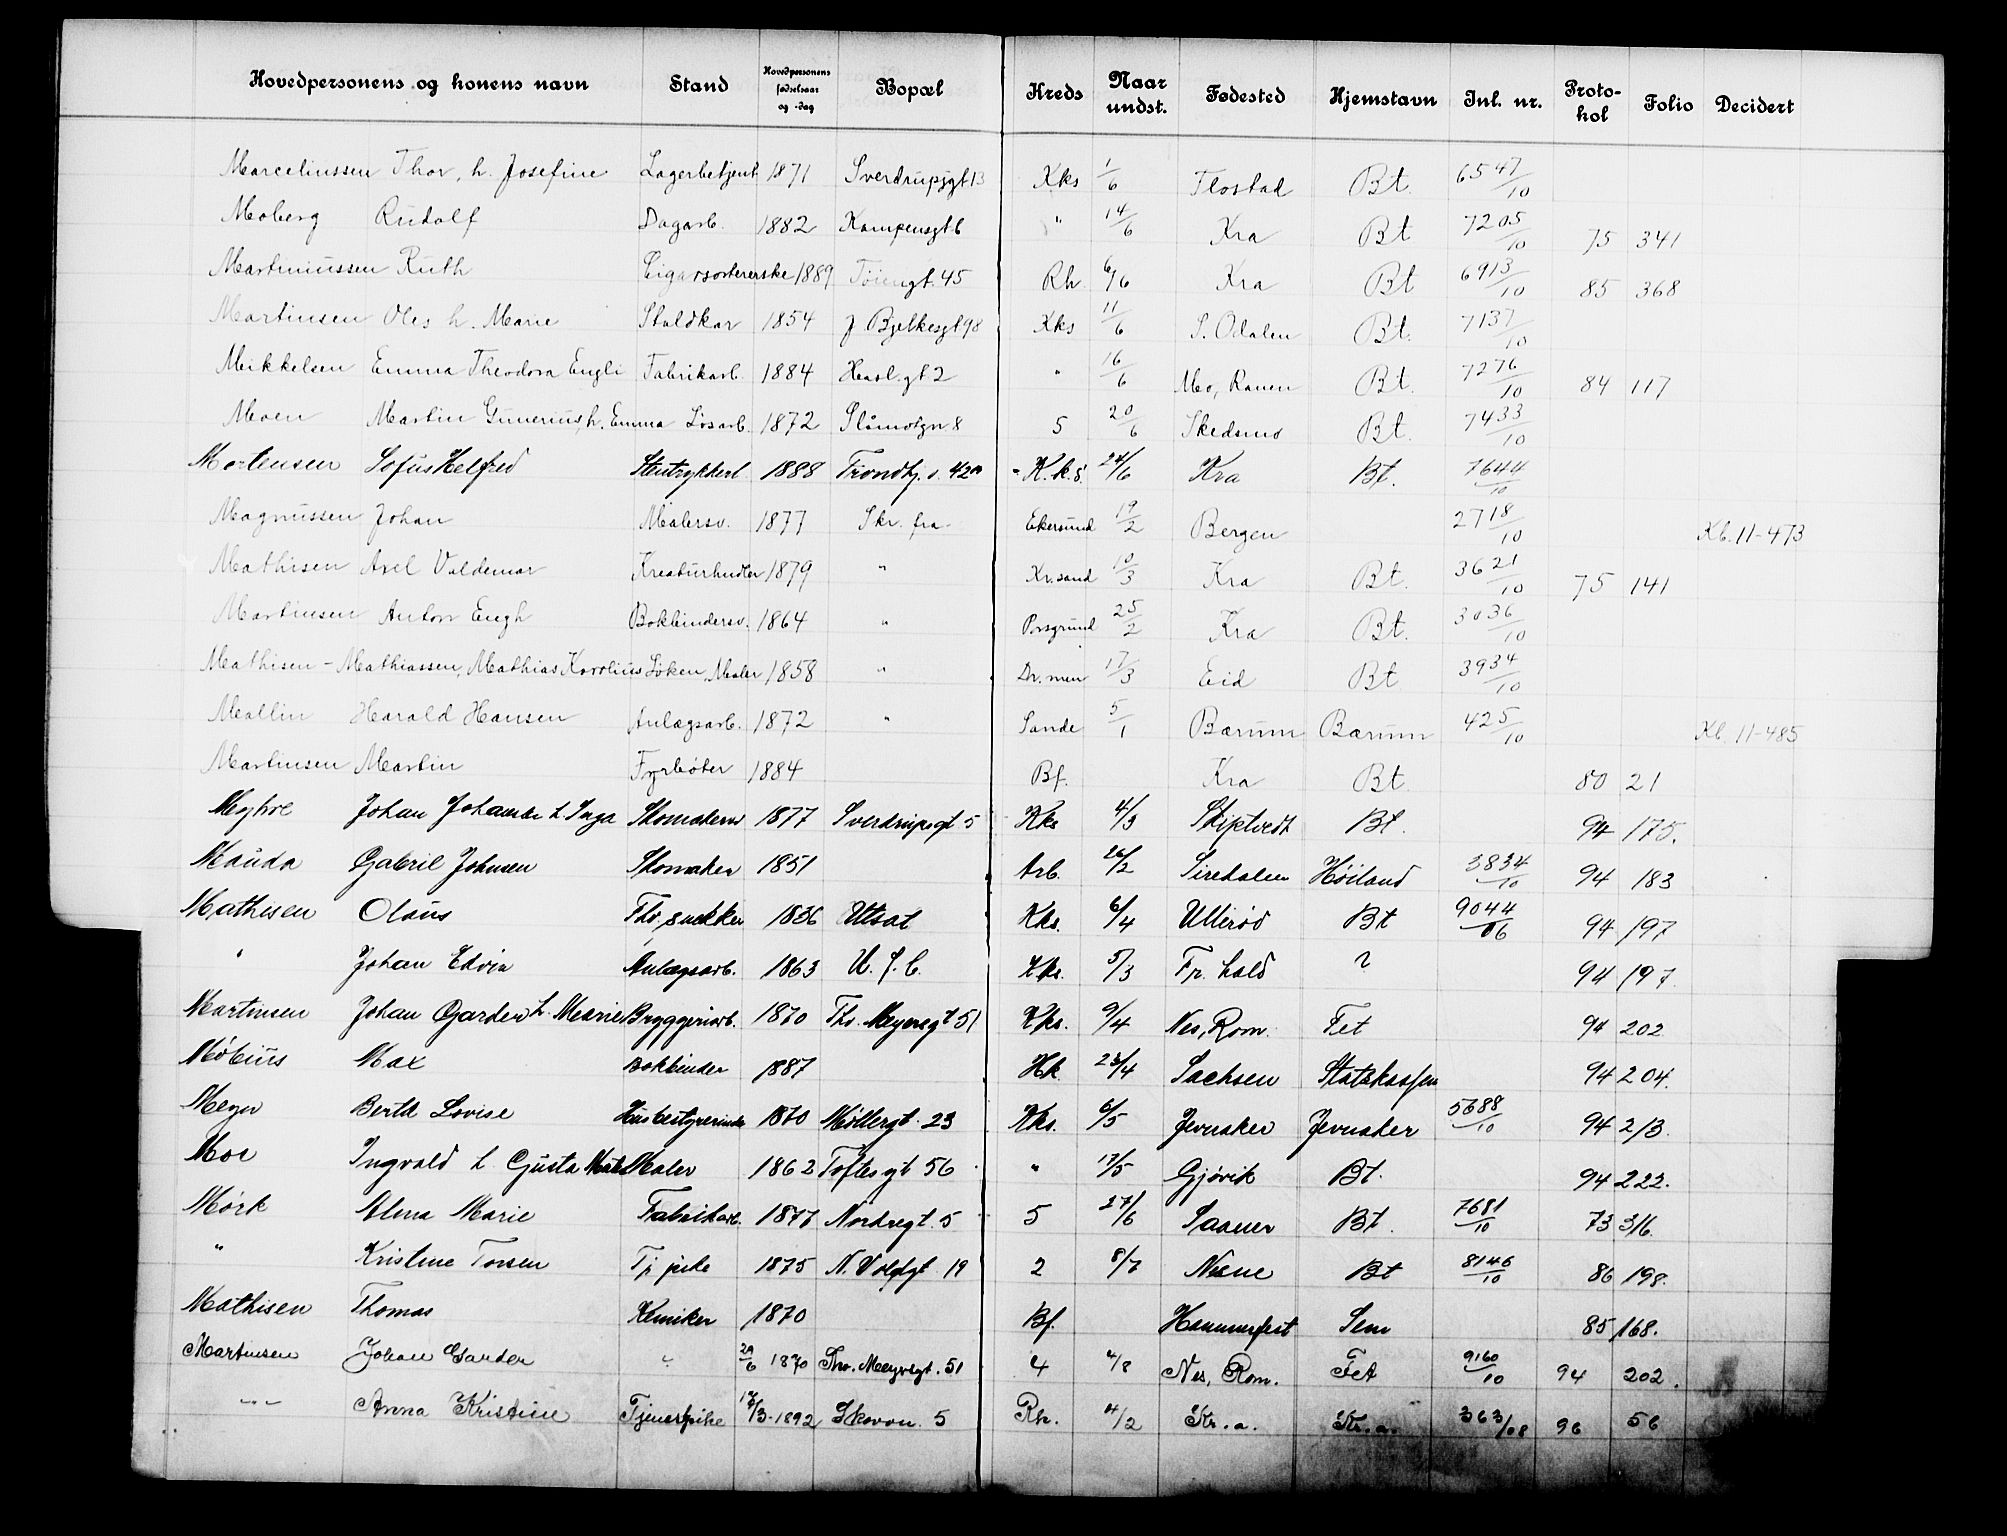 Hovedpersonens og konens navn Stand Hovedpersonens fødselsaar og -dag Bopæl Kreds Naar undst. Fødested Hjemstavn Inl. nr. Proto-kol Folio Decidert
Marceliussen Thor, h. Josefine Lagerbetjent 1871 Sverdrupsgt 13 Kks 1/6 Flostad Bt. 6547/10
Moberg Rudolf Dagarb. 1882 Kampensgt 6 " 14/6 Kra Bt 7205/10 75 341
Martiniussen Ruth Cigarsortererske 1889 Tøiengt. 45 Rh 6/6 Kra Bt 6913/10 85 368
Martinsen Ole, h. Marie Staldkar 1854 J. Bjelkesgt 98 Kks 11/6 S. Odalen Bt. 7137/10
Mikkelsen Emma Theodora Engli Fabrikarb. 1884 Hasl. gt 2 " 16/6 Mo, Ranen Bt. 7276/10 84 117
Moen Martin Gunerius, h. Emma Løsarb. 1872 Slåmotgn 8 5 20/6 Skedsmo Bt. 7433/10
Mortensen Sofus Helfred Stentrykkerl. 1888 Trondhj. v. 42 K.k.s. 24/6 Kra Bt. 7644/10
Magnussen Johan Malersv. 1877 Skr. fra Ekersund 19/2 Bergen 2718/10 Kb. 11-473
Mathisen Axel Valdemar Kreaturhndler 1879 " Kr.sand 10/3 Kra Bt. 3621/10 75 141
Martinsen Anton Engh Bokbindersv. 1864 " Porsgrund 25/2 Kra Bt. 3036/10
Mathisen - Mathiassen, Mathias Karolius Løken, Maler 1858 " Dr.men 17/3 Eid Bt 3934/10
Mallin Harald Hansen Anlægsarb. 1872 " Sande 5/1 Bærum Bærum 425/10 Kb. 11-485
Martinsen Martin Fyrbøter 1884 Bf. Kra Bt 80 21
Myhre Johan Johanses h. Inga Skomakersv 1877 Sverdrupsgt 5 Kks 4/3 Skiptvedt Bt. 94 175.
Mauda Gabriel Johnsen Skomaker 1851 Arb. 26/2 Siredalen Høiland 3834/10 94 183
Mathisen Olaus Fhv. snekker 1836 Utsat Kks. 6/4 Ullerød Bt 9044/06 94 197
" Johan Edvin Anlægsarb. 1863 U. f. b. Kks. 5/3 Fr. hald ? 94 197
Martinsen Johan Garder h. Marie Bryggeriarb. 1870 Thv. Meyersgt 51 Kks. 9/4 Nes, Rom. Fet 94 202
Møbius Max Bokbinder 1887 Hk. 23/4 Sachsen Statskassen 94 204.
Meyer Berta Lovise Husbestyrerinde 1870 Møllergt. 23 Kks. 6/5 Jevnaker Jevnaker 5688/10 94 213.
Moe Ingvald h. Gusta Maler 1862 Toftesgt 56 " 17/5 Gjøvik Bt. 94 222.
Mørk Alena Marie Fabrikarb. 1877 Nordregt. 5 5 27/6 Saaner Bt. 7681/10 73 316.
" Kristine Torsen Tj pike 1875 N. Voldgt 19 2 8/7 Næsne Bt 8146/10 86 198.
Mathisen Thomas Kemiker 1870 Bf. Hammerfest Sem 85 168.
Martinsen Johan Garder " 29/6 1870 Thv. Meyersgt. 51 4 4/8 Nes, Rom. Fet 9160/10 94 202.
-"- Anna Kristine Tjenestpike 17/3-1892 Skovvn. 5 Rh. 4/2 Kr.a. Kr.a. 363/08 96 56